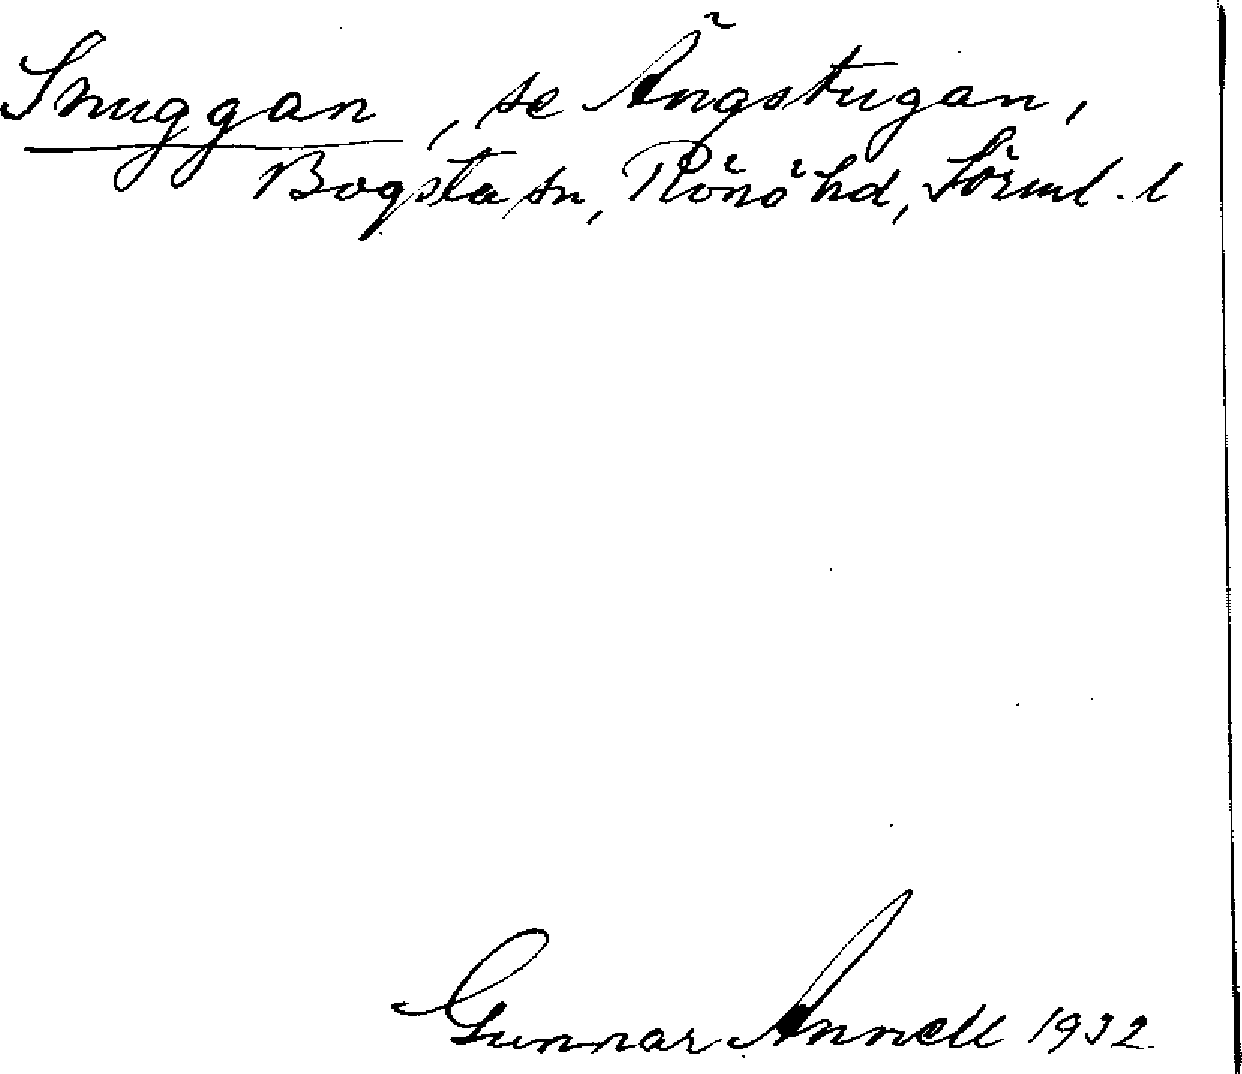 Snuggan, se Ängstugan,
Bogsta sn, Rönö hd, Sörml. l
Gunnar Annell 1932